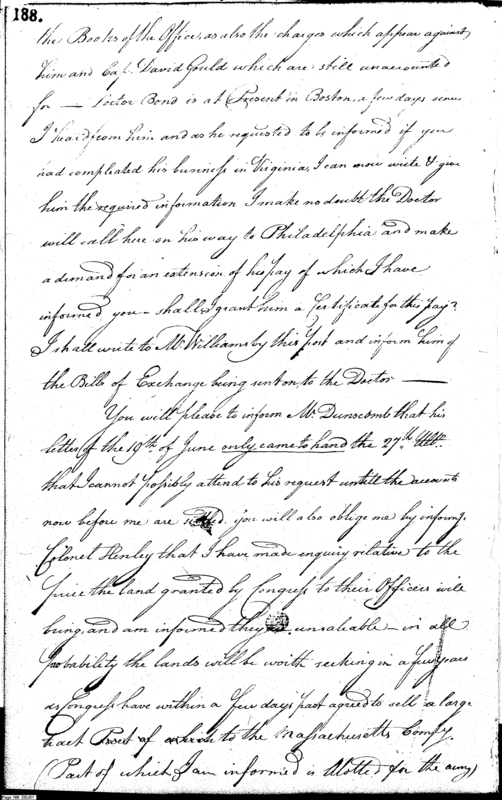 188.
the Books of the Office, as also the charges which appear against
him and Cap.t David Gould which are still unaccounted
for — Doctor Bond is at Present in Boston, a few days since
I heard from him and as he requested to be informed if you
had compleated his buisness in Virginia, I can now write & give
him the required information I make no doubt the Doctor
will call here on his way to Philadelphia and make
a demand for an extension of his pay of which I have
informed you – shall I grant him a Certificate for this pay?
I shall write to Mr Williams by this post and inform him of
the Bills of Exchange being sent on to the Doctor —
You will please to inform Mr. Dunscomb that his
letter of the 19th of June only came to hand the 27th
that I cannot possibly attend to his request untill the accounts
now before me are settled. you will also oblige me by informg.
Colonel Henley that I have made enquiry relative to the
Price the land granted by Congress to their Officers will
bring, and am informed they unsaleable – in all
probability the lands will be worth seeking in a few years
as Congress have within a few days past agreed to sell a large
tract to the Massachusetts Compy.
(Part of which I am informed is Allotted for the army)